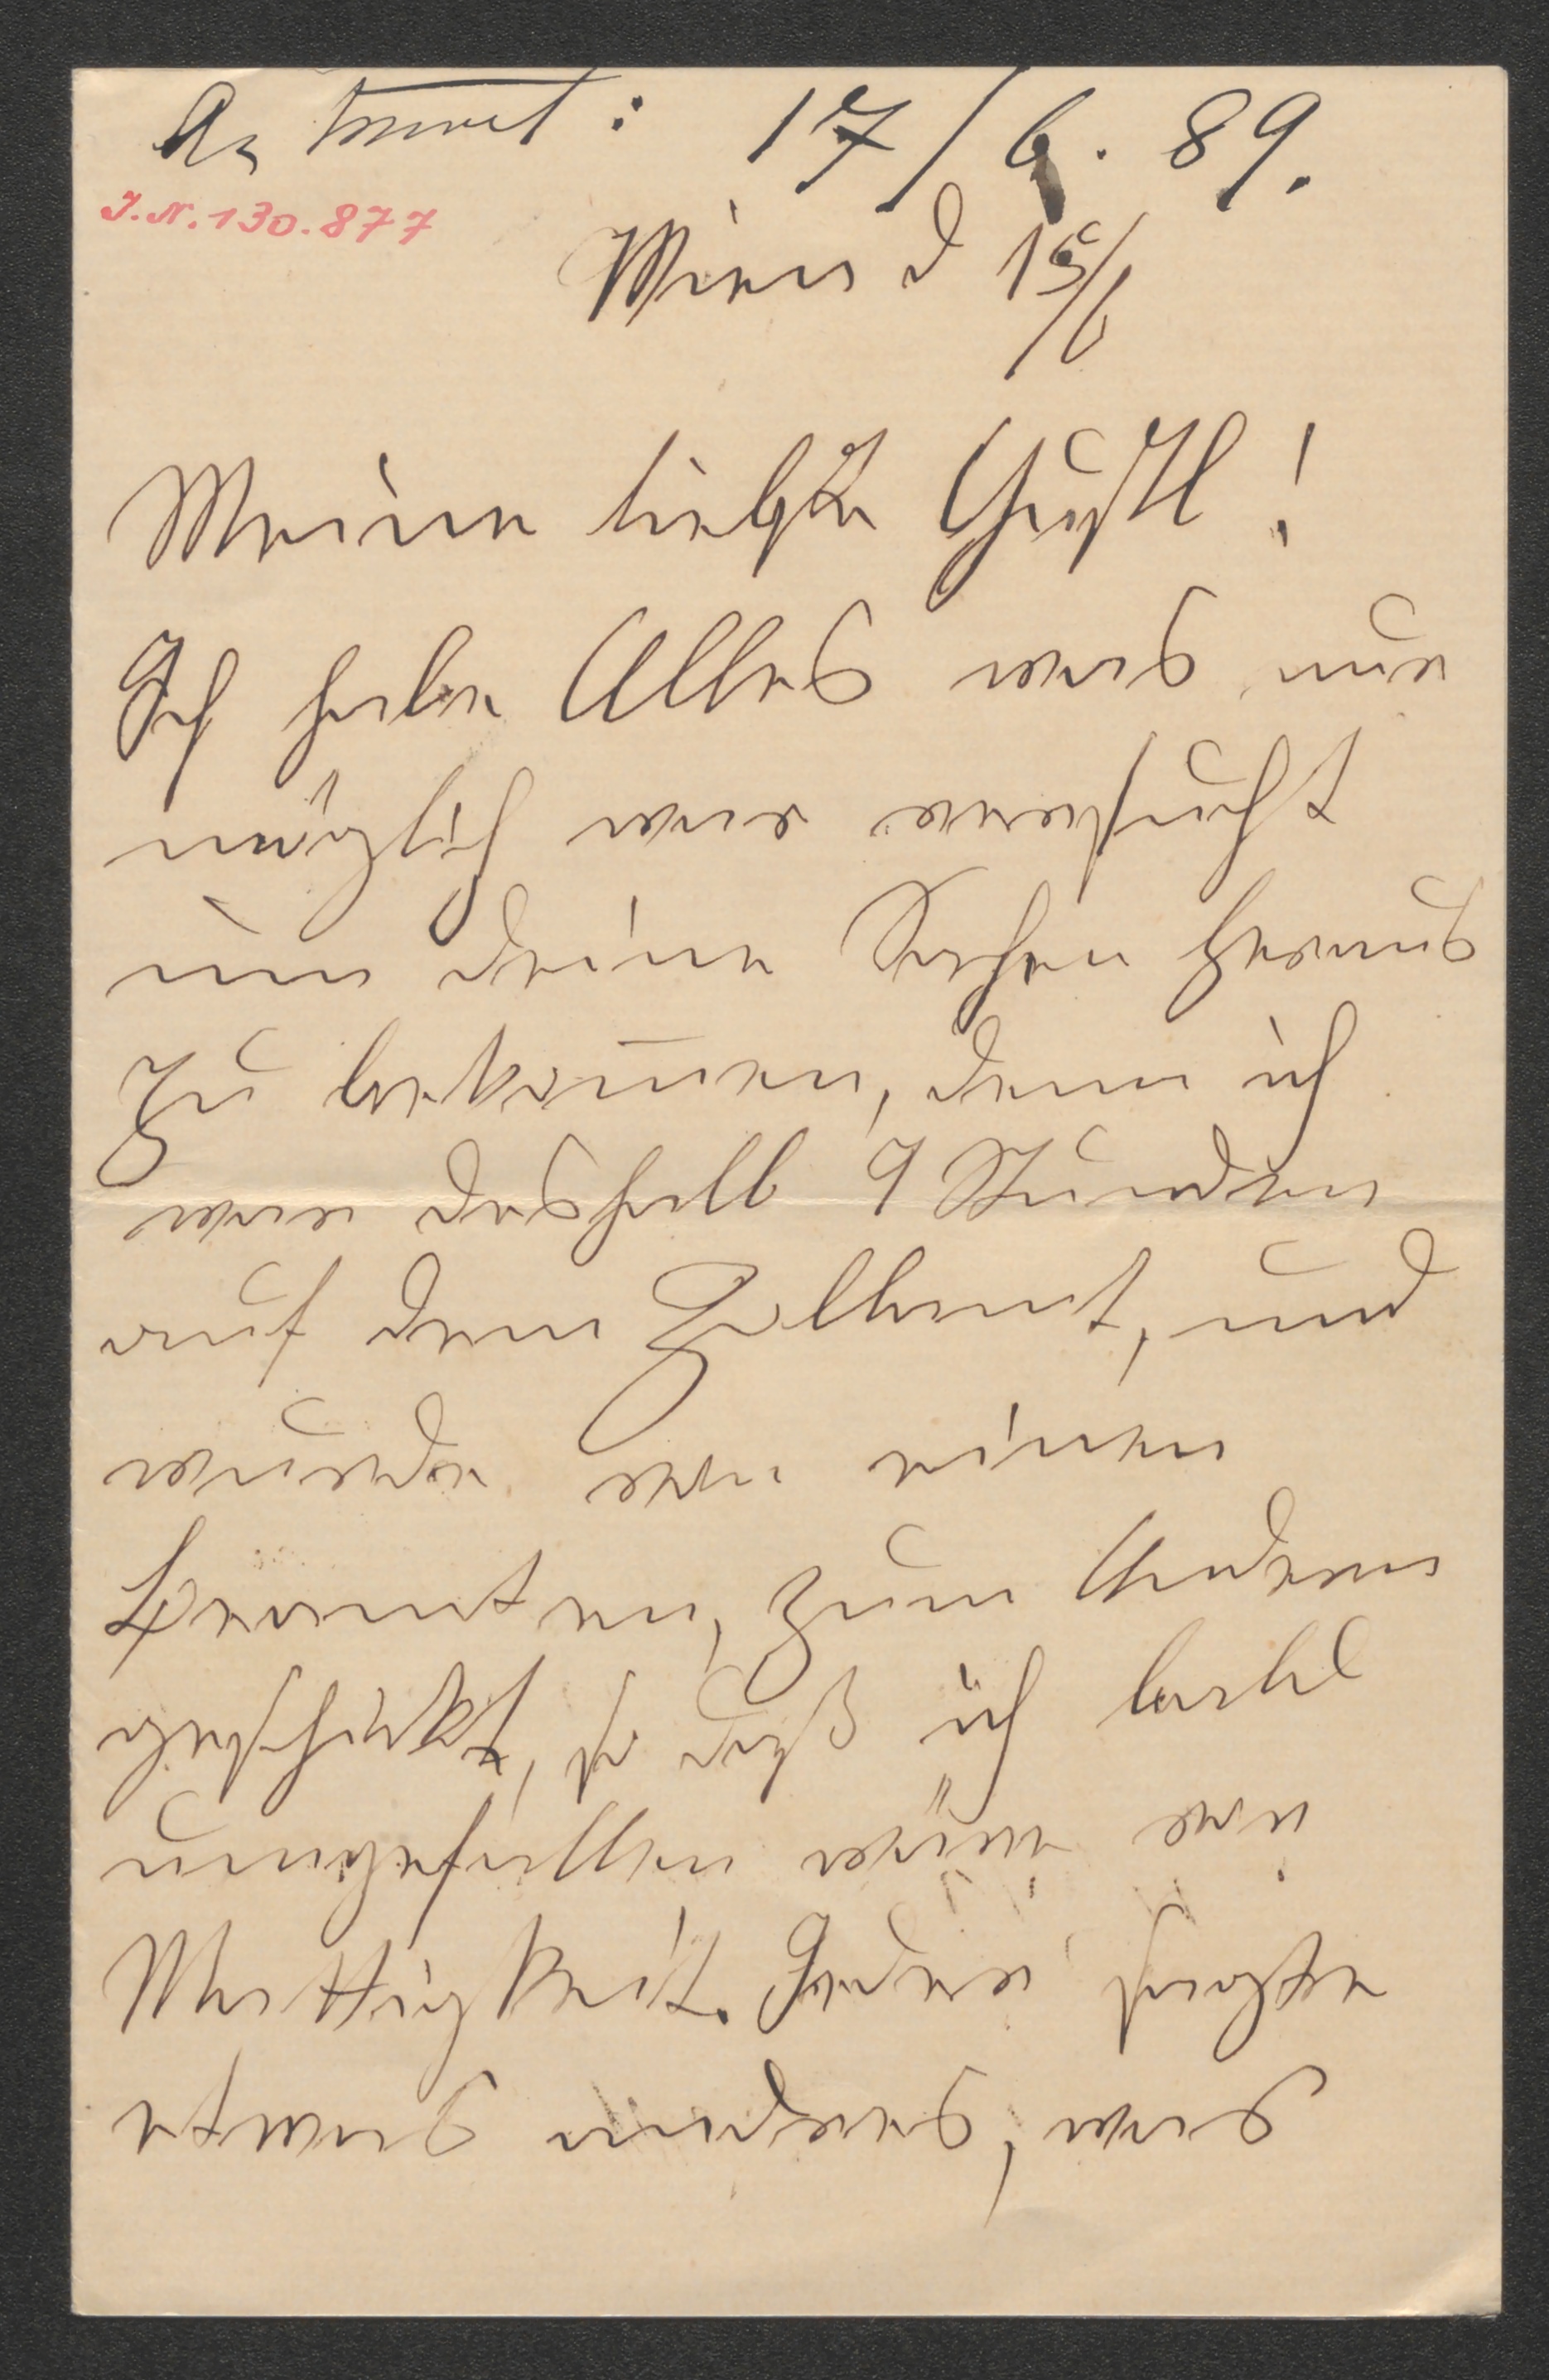 Antwort: 17/6. 89.
J.N. 130.877
Wien d 15/6
Meine liebste Gustl!
Ich habe Alles was nur
möglich war versucht
um deine Sachen heraus
zu bekom̅en, denn ich
war deshalb 9 Stunden
auf dem Zollamt, und
wurde von einen
Beamten, zum Andern
geschickt, so daß ich bald
umgefallen wäre vor
Mattigkeit. Jeder sagte
etwas anderes, was